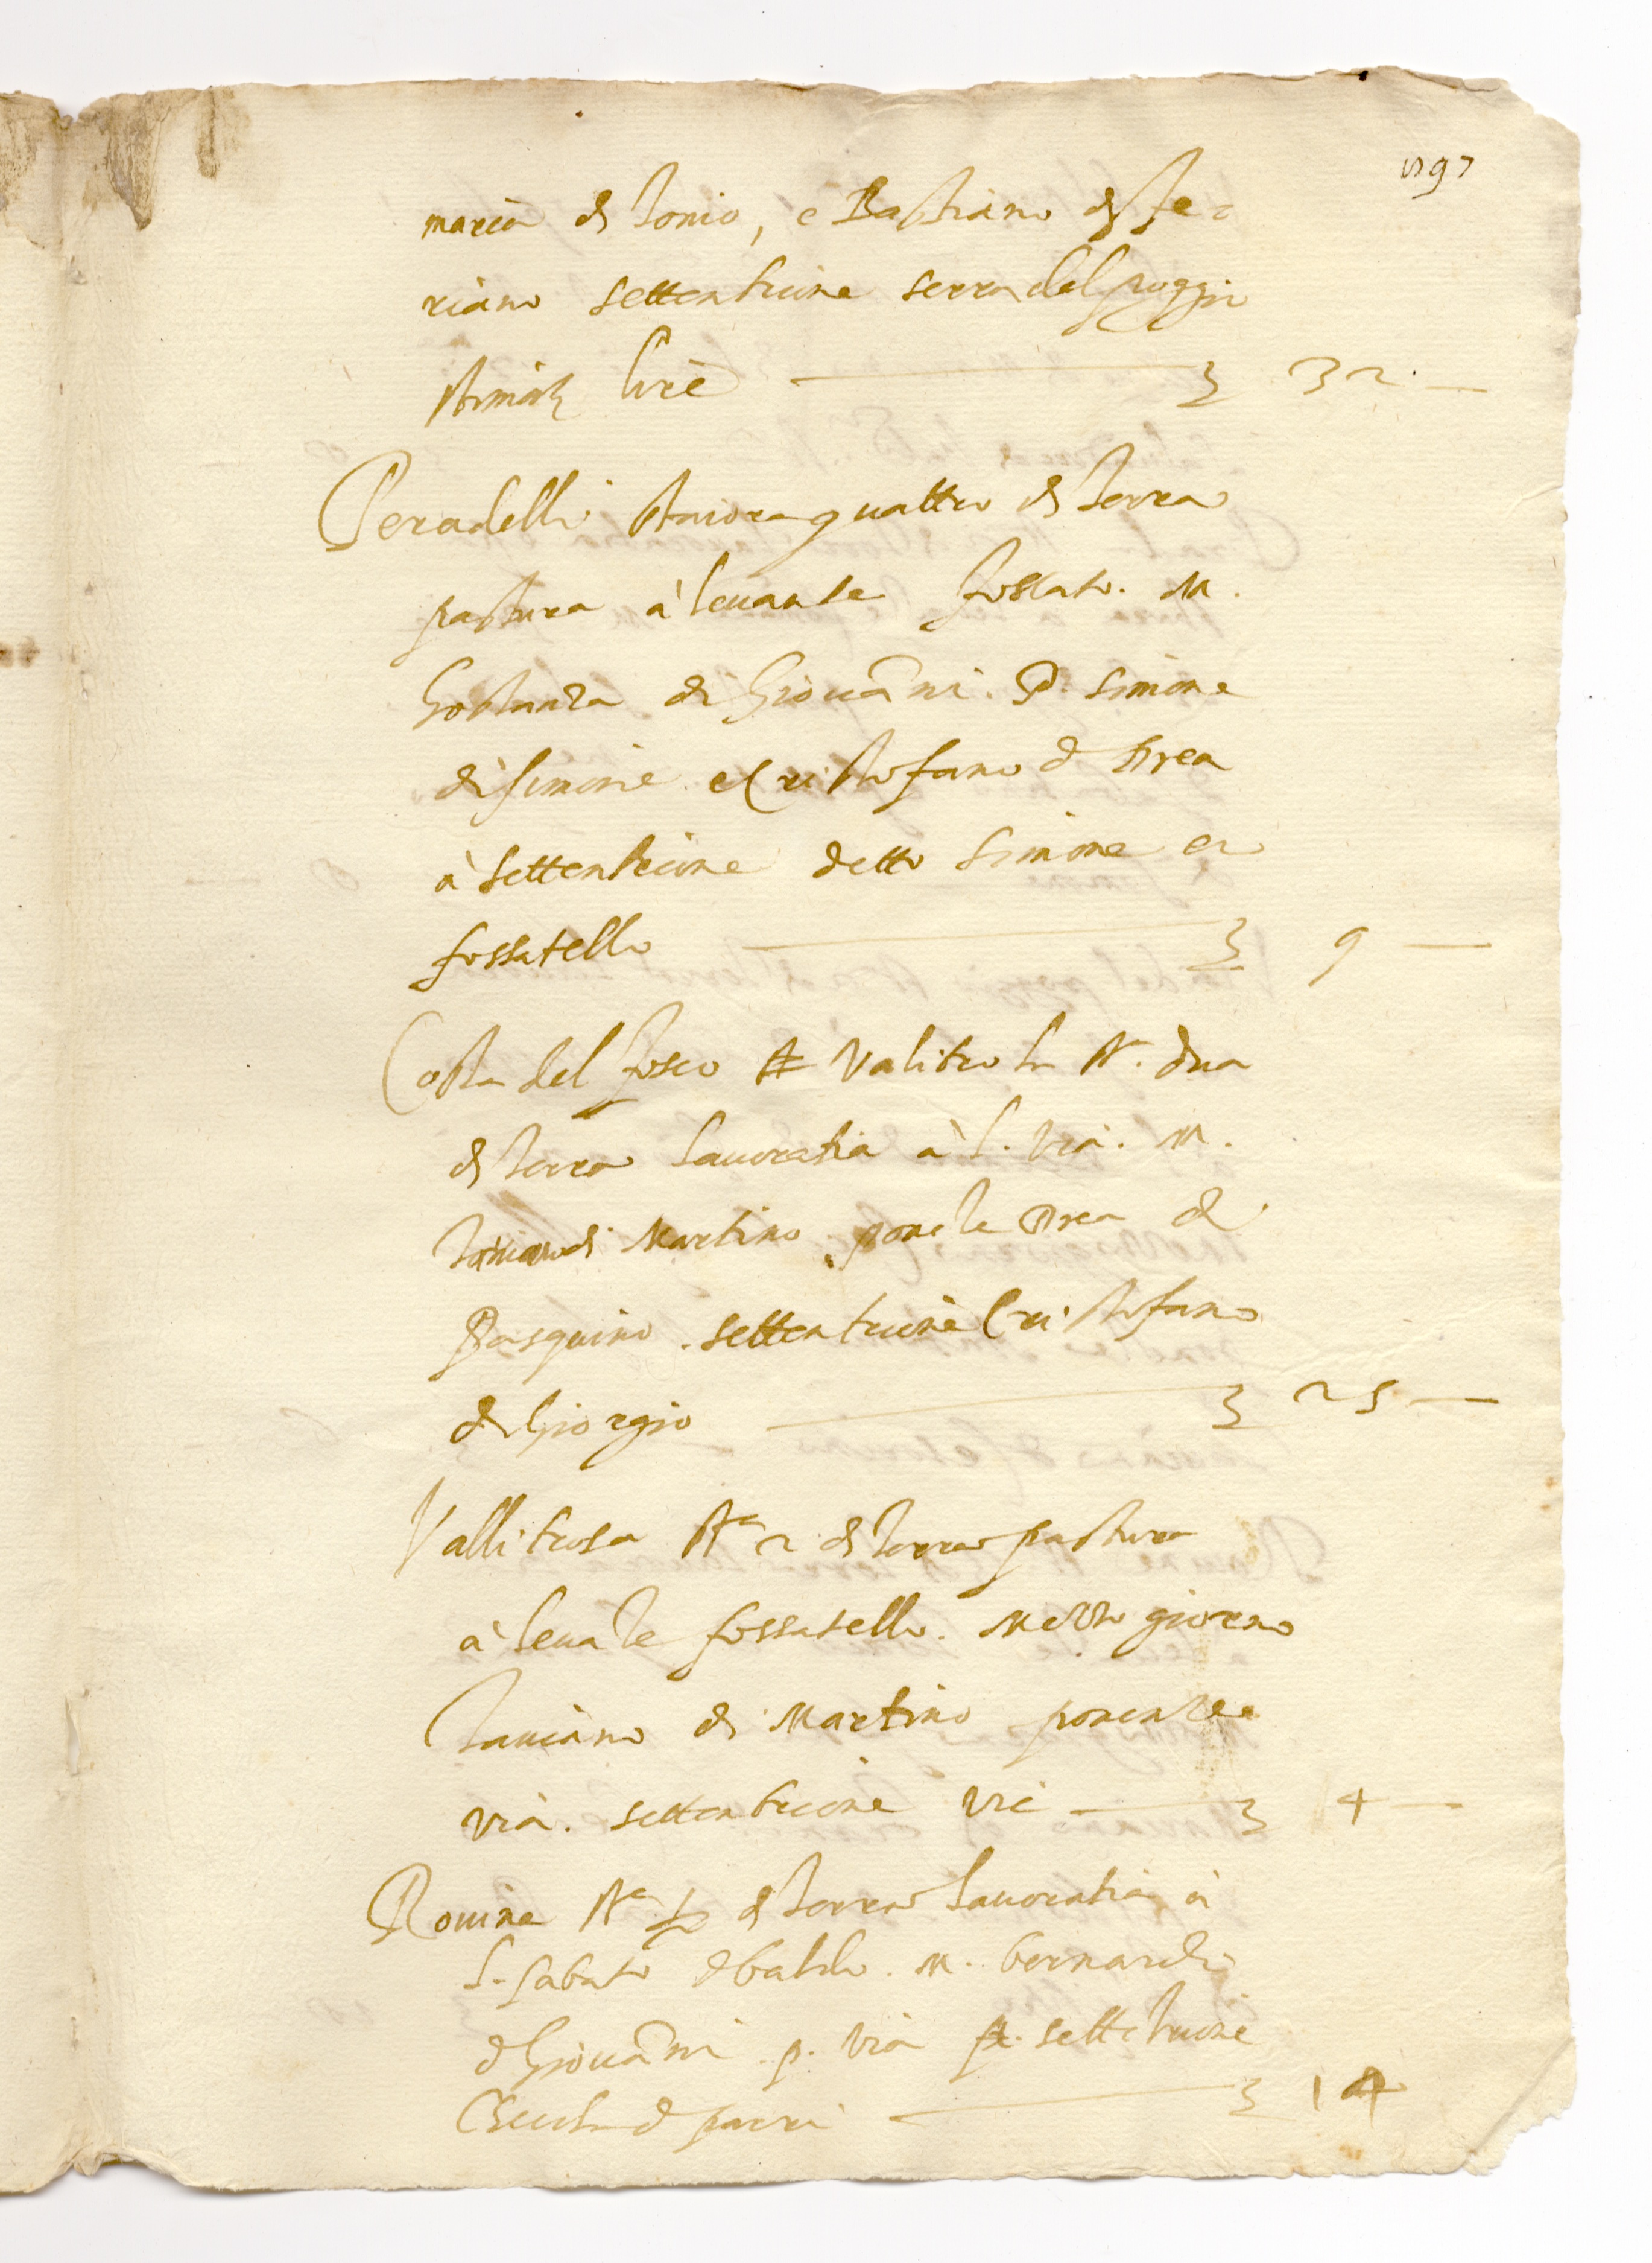 597
maria di Tonio, e Bastiano di Ste=
riano settentrione serra del poggio
stimata lire ——— ₤ 32 —
Peradelli staiora quattro di terra
pastura à leuante fossato. M.
Gostanza di Giouãni. P. Simone
di Simone e Cristofano d Drea
à settentrione detto Simone e
fossatello ——— ₤ 9 —
Costa del fosco Valitro st. dua
di terra lauoratia à l. via. M.
Tauiano di Martino. ponete Drea di
Pasquino. settentrione Cristofano
di Giorgio ——— ₤ 25 —
Vallitrosa sta 2 di terra pastura
à leuãte fossatello. Mezzo giorno
Tauiano di Martino ponente
via. settentrione via ——— ₤ 4 —
Rouine sta di terra lauoratia à
l. Sabato d baldo. M. bernardo
d Giouãni p. via settẽtrione
d parri ——— ₤ 14